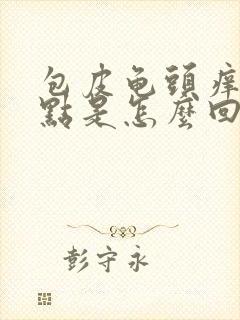 包皮龟頭痒
點是怎麼回
彭守永